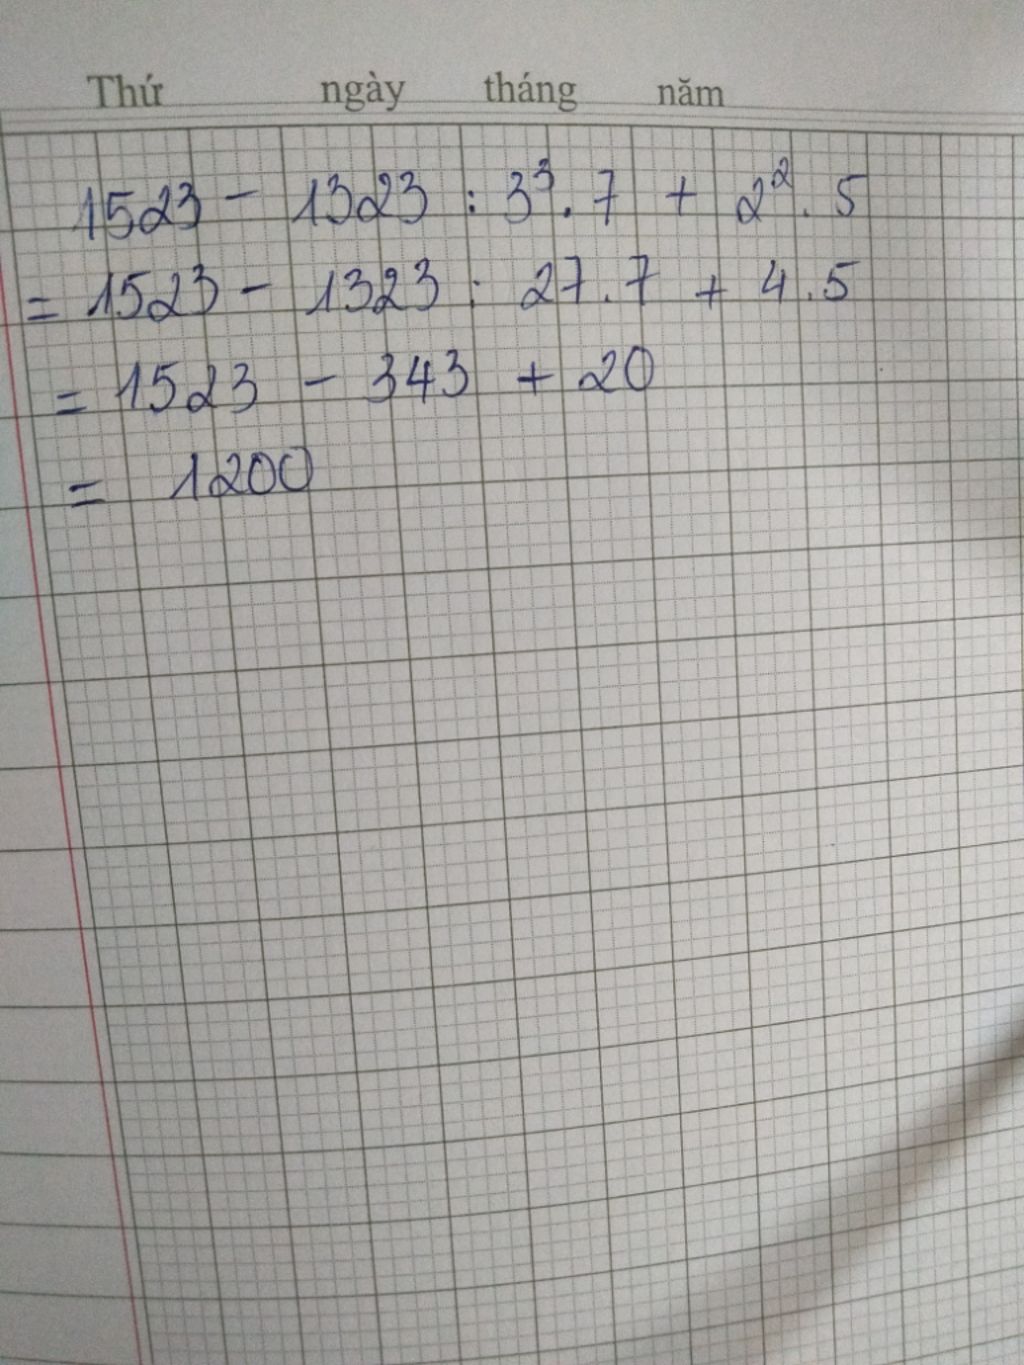 Thứ ngày tháng năm
1523 - 1323 : 3³ . 7 + 2² . 5
= 1523 - 1323 : 27 . 7 + 4 . 5
= 1523 - 343 + 20
= 1200